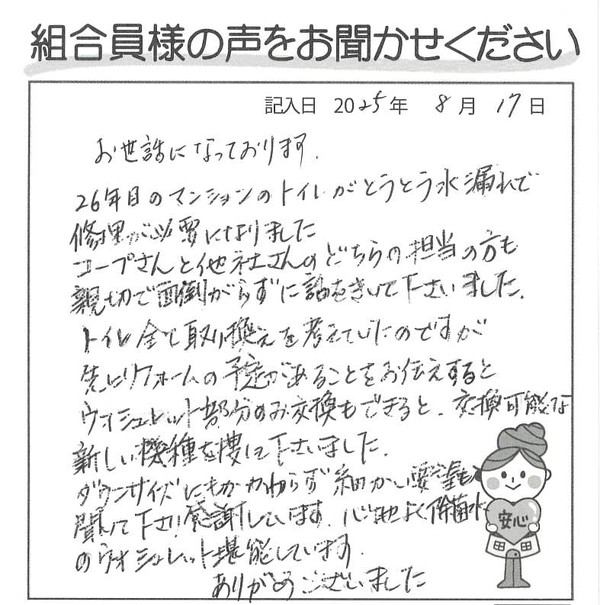 組合員様の声をお聞かせください
記入日 2025年 8月 17日
お世話になっております.
26年目のマンションのトイレがとうとう水漏れで
修理が必要になりました
コープさんと他社さんのどちらの担当の方も
親切で面倒がらずに話をきいて下さいました.
トイレ全て取り換えを考えていたのですが
先にリフォームの予定があることをお伝えすると
ウォシュレット部分のみ交換もできると、交換可能な
新しい機種を捜して下さいました.
ダウンサイズにもかかわらず細かい要望も
聞いて下さり感謝しています. 心地よく除菌水
のウォシュレット堪能しています.
ありがとうございました
安心